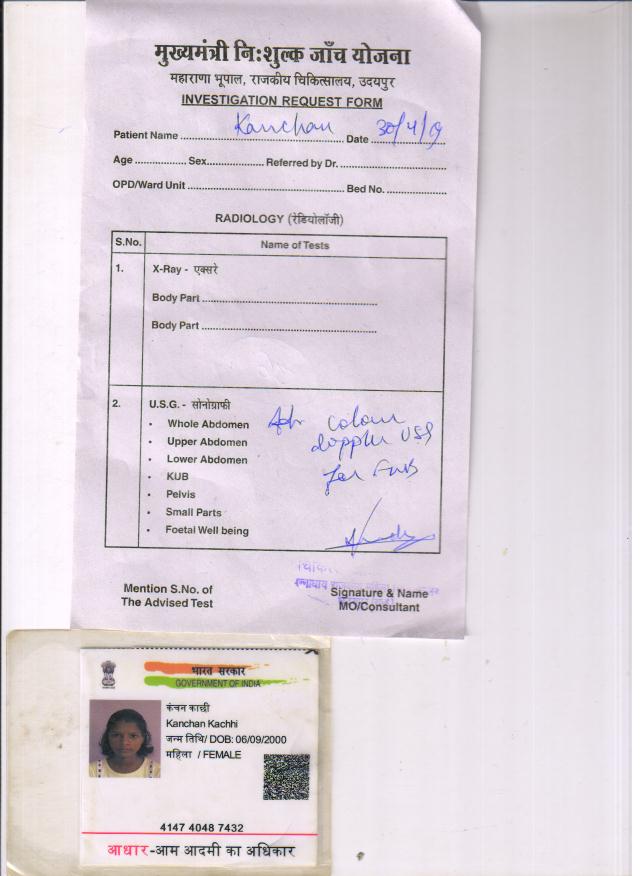 मुख्यमंत्री निःशुल्क जाँच योजना
महाराणा भूपाल, राजकीय चिकित्सालय, उदयपुर
INVESTIGATION REQUEST FORM
Patient Name ........ Kanchan ........ Date 30/4/19
Age ................ Sex.................. Referred by Dr. ................................
OPD/Ward Unit ................................................ Bed No. ..................
RADIOLOGY (रेडियोलॉजी)
S.No. Name of Tests
1. X-Ray - एक्सरे
Body Part ......................................................
Body Part ......................................................
2. U.S.G. - सोनोग्राफी
• Whole Abdomen
• Upper Abdomen
• Lower Abdomen
• KUB
• Pelvis
• Small Parts
• Foetal Well being
Adv colour
doppler USG
for FWB
Mention S.No. of
The Advised Test
Signature & Name
MO/Consultant
भारत सरकार
GOVERNMENT OF INDIA
कंचन काछी
Kanchan Kachhi
जन्म तिथि/ DOB: 06/09/2000
महिला / FEMALE
4147 4048 7432
आधार-आम आदमी का अधिकार